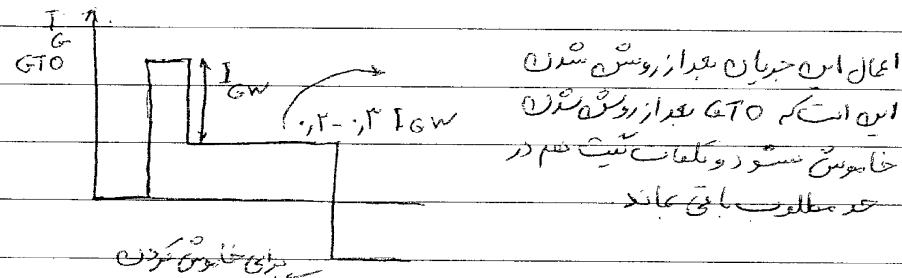 I
G
GTO
I GW
۰,۲-۰,۳ I GW
اعمال این جریان بعد از روشن شدن
این است که GTO بعد از روشن شدن
خاموش نشود و تلفات گیت هم در
حد مطلوب باقی بماند
برای خاموش کردن